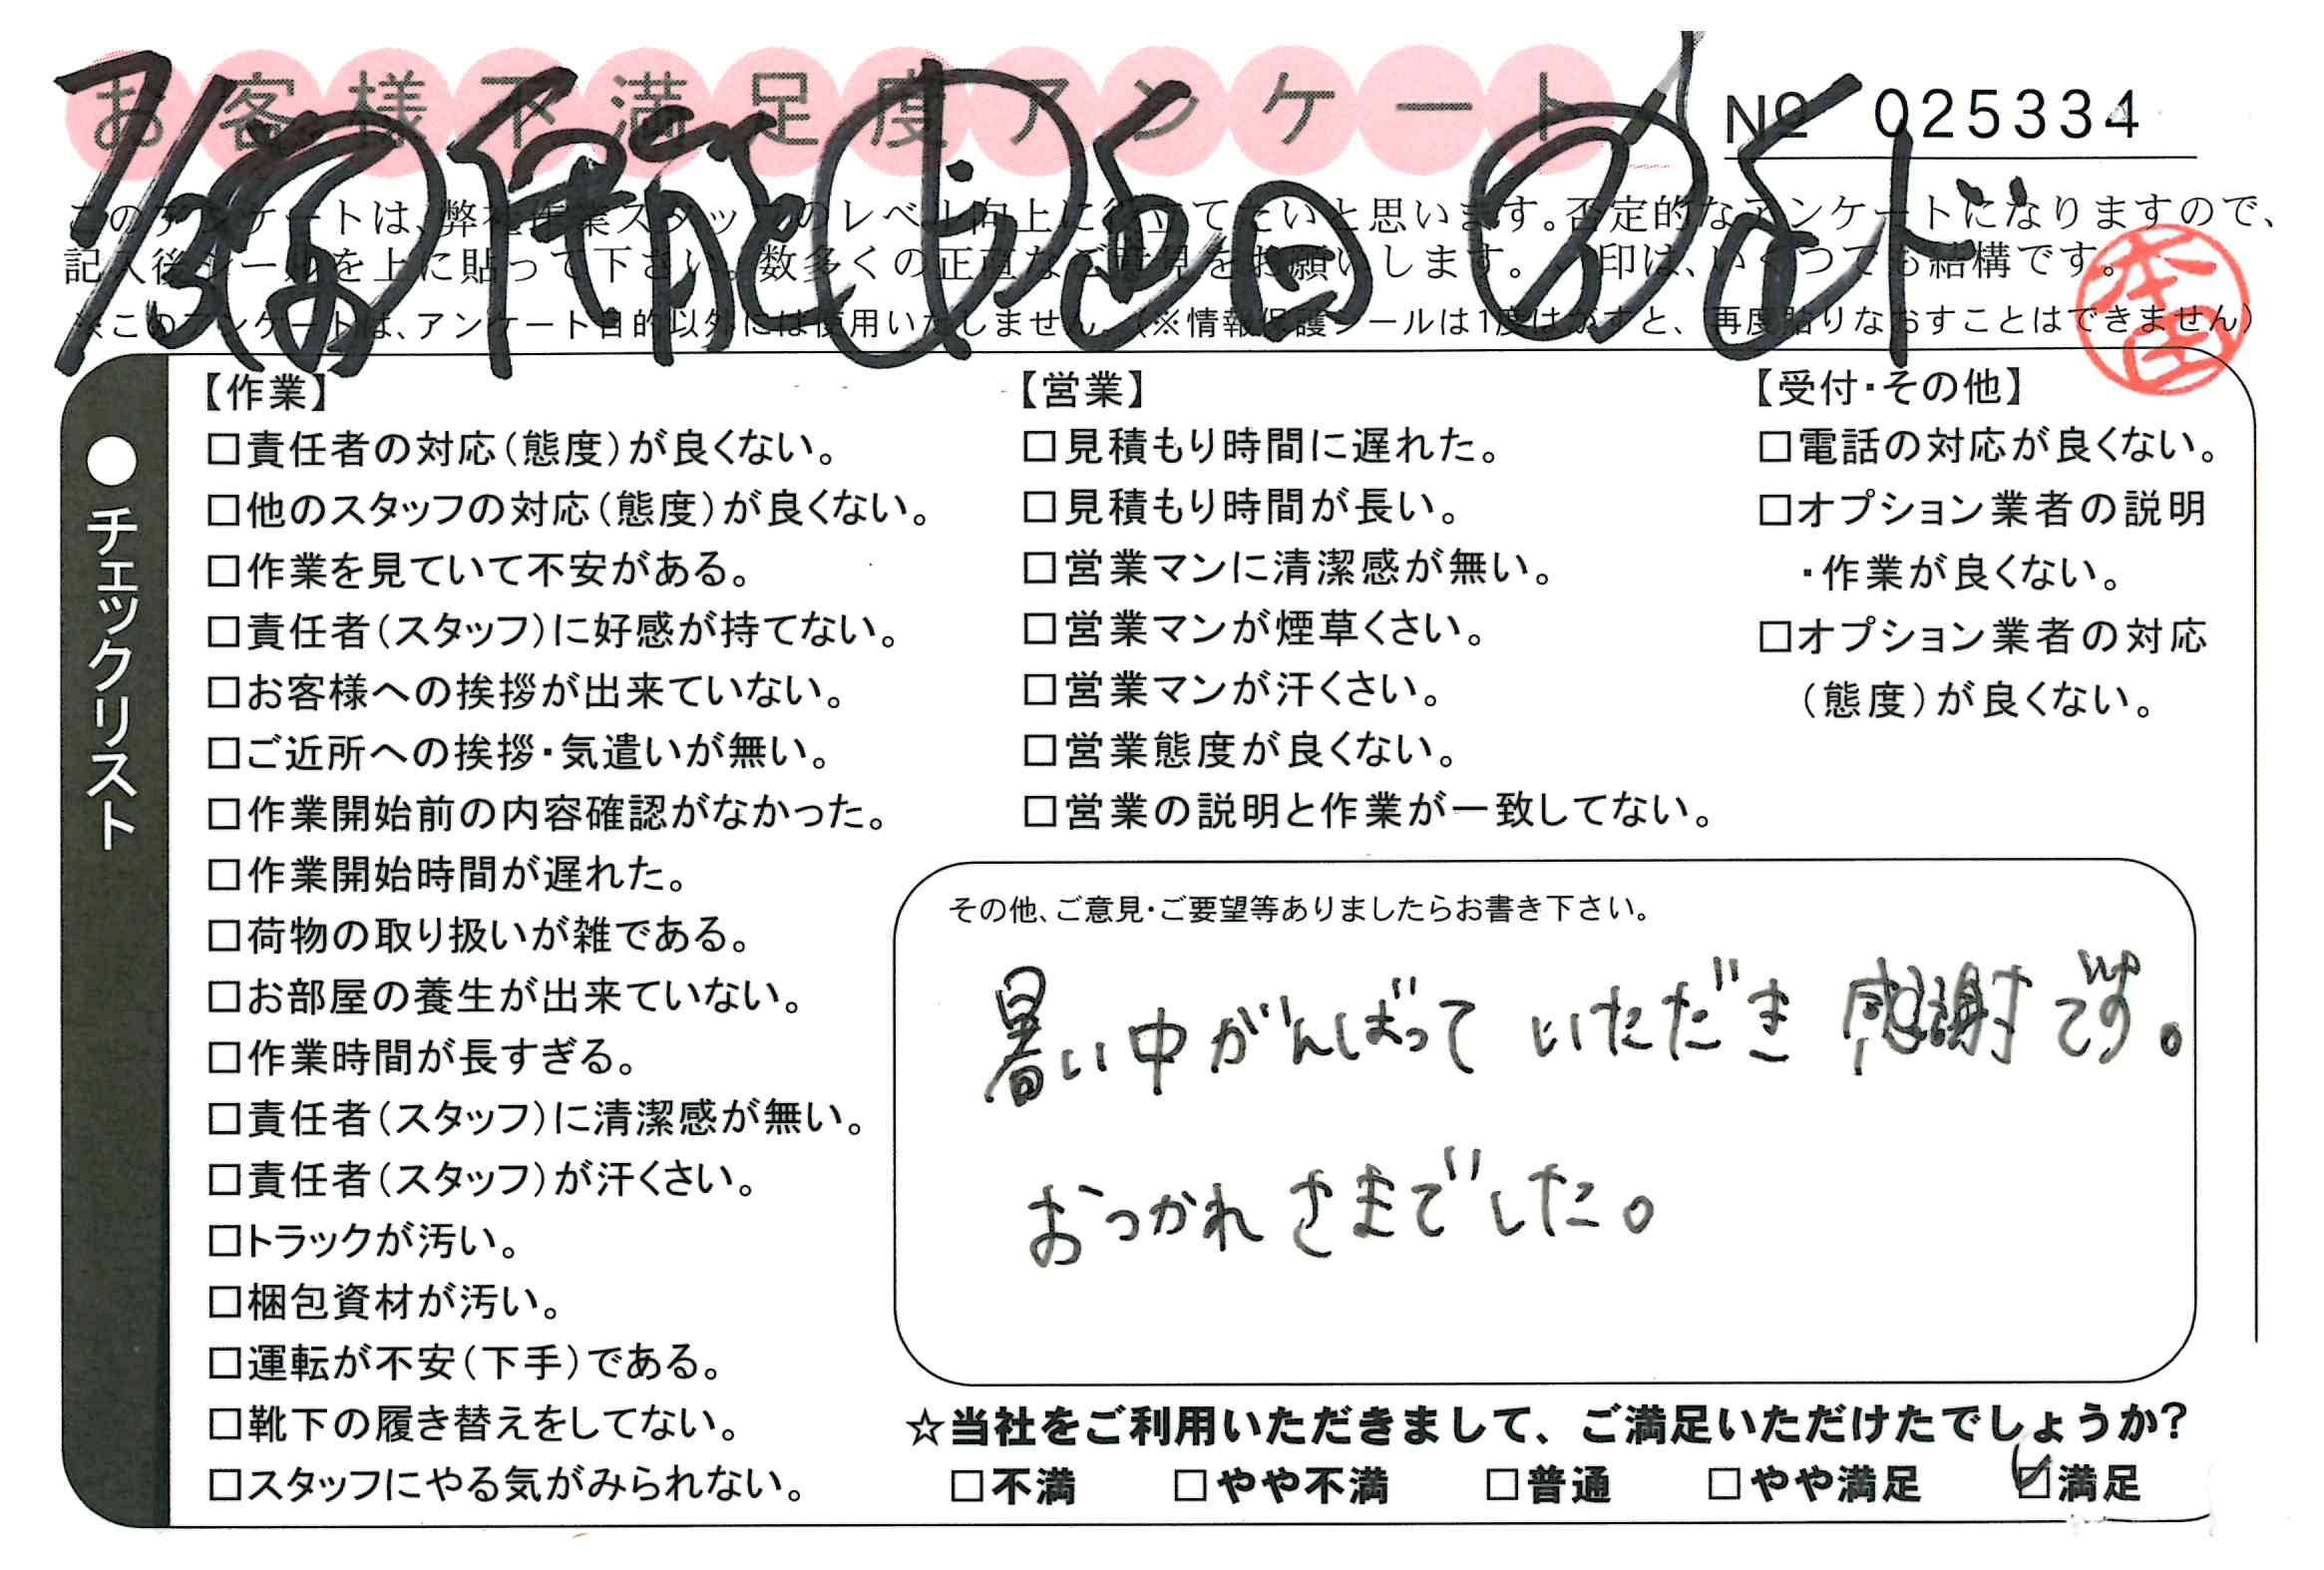 お客様不満足度アンケート
№ 025334
このアンケートは、弊社作業スタッフのレベル向上に役立てたいと思います。否定的なアンケートになりますので、
記入後シールを上に貼って下さい。数多くの正直なご意見をお願いします。レ印は、いくつでも結構です。
※このアンケートは、アンケート目的以外には使用いたしません。(※情報保護シールは1度はがすと、再度貼りなおすことはできません)
本田
●チェックリスト
【作業】
□責任者の対応(態度)が良くない。
□他のスタッフの対応(態度)が良くない。
□作業を見ていて不安がある。
□責任者(スタッフ)に好感が持てない。
□お客様への挨拶が出来ていない。
□ご近所への挨拶・気遣いが無い。
□作業開始前の内容確認がなかった。
□作業開始時間が遅れた。
□荷物の取り扱いが雑である。
□お部屋の養生が出来ていない。
□作業時間が長すぎる。
□責任者(スタッフ)に清潔感が無い。
□責任者(スタッフ)が汗くさい。
□トラックが汚い。
□梱包資材が汚い。
□運転が不安(下手)である。
□靴下の履き替えをしてない。
□スタッフにやる気がみられない。
【営業】
□見積もり時間に遅れた。
□見積もり時間が長い。
□営業マンに清潔感が無い。
□営業マンが煙草くさい。
□営業マンが汗くさい。
□営業態度が良くない。
□営業の説明と作業が一致してない。
【受付・その他】
□電話の対応が良くない。
□オプション業者の説明
・作業が良くない。
□オプション業者の対応
(態度)が良くない。
その他、ご意見・ご要望等ありましたらお書き下さい。
暑い中がんばって いただき 感謝です。
おつかれさまでした。
☆当社をご利用いただきまして、ご満足いただけたでしょうか?
□不満 □やや不満 □普通 □やや満足 ☑満足